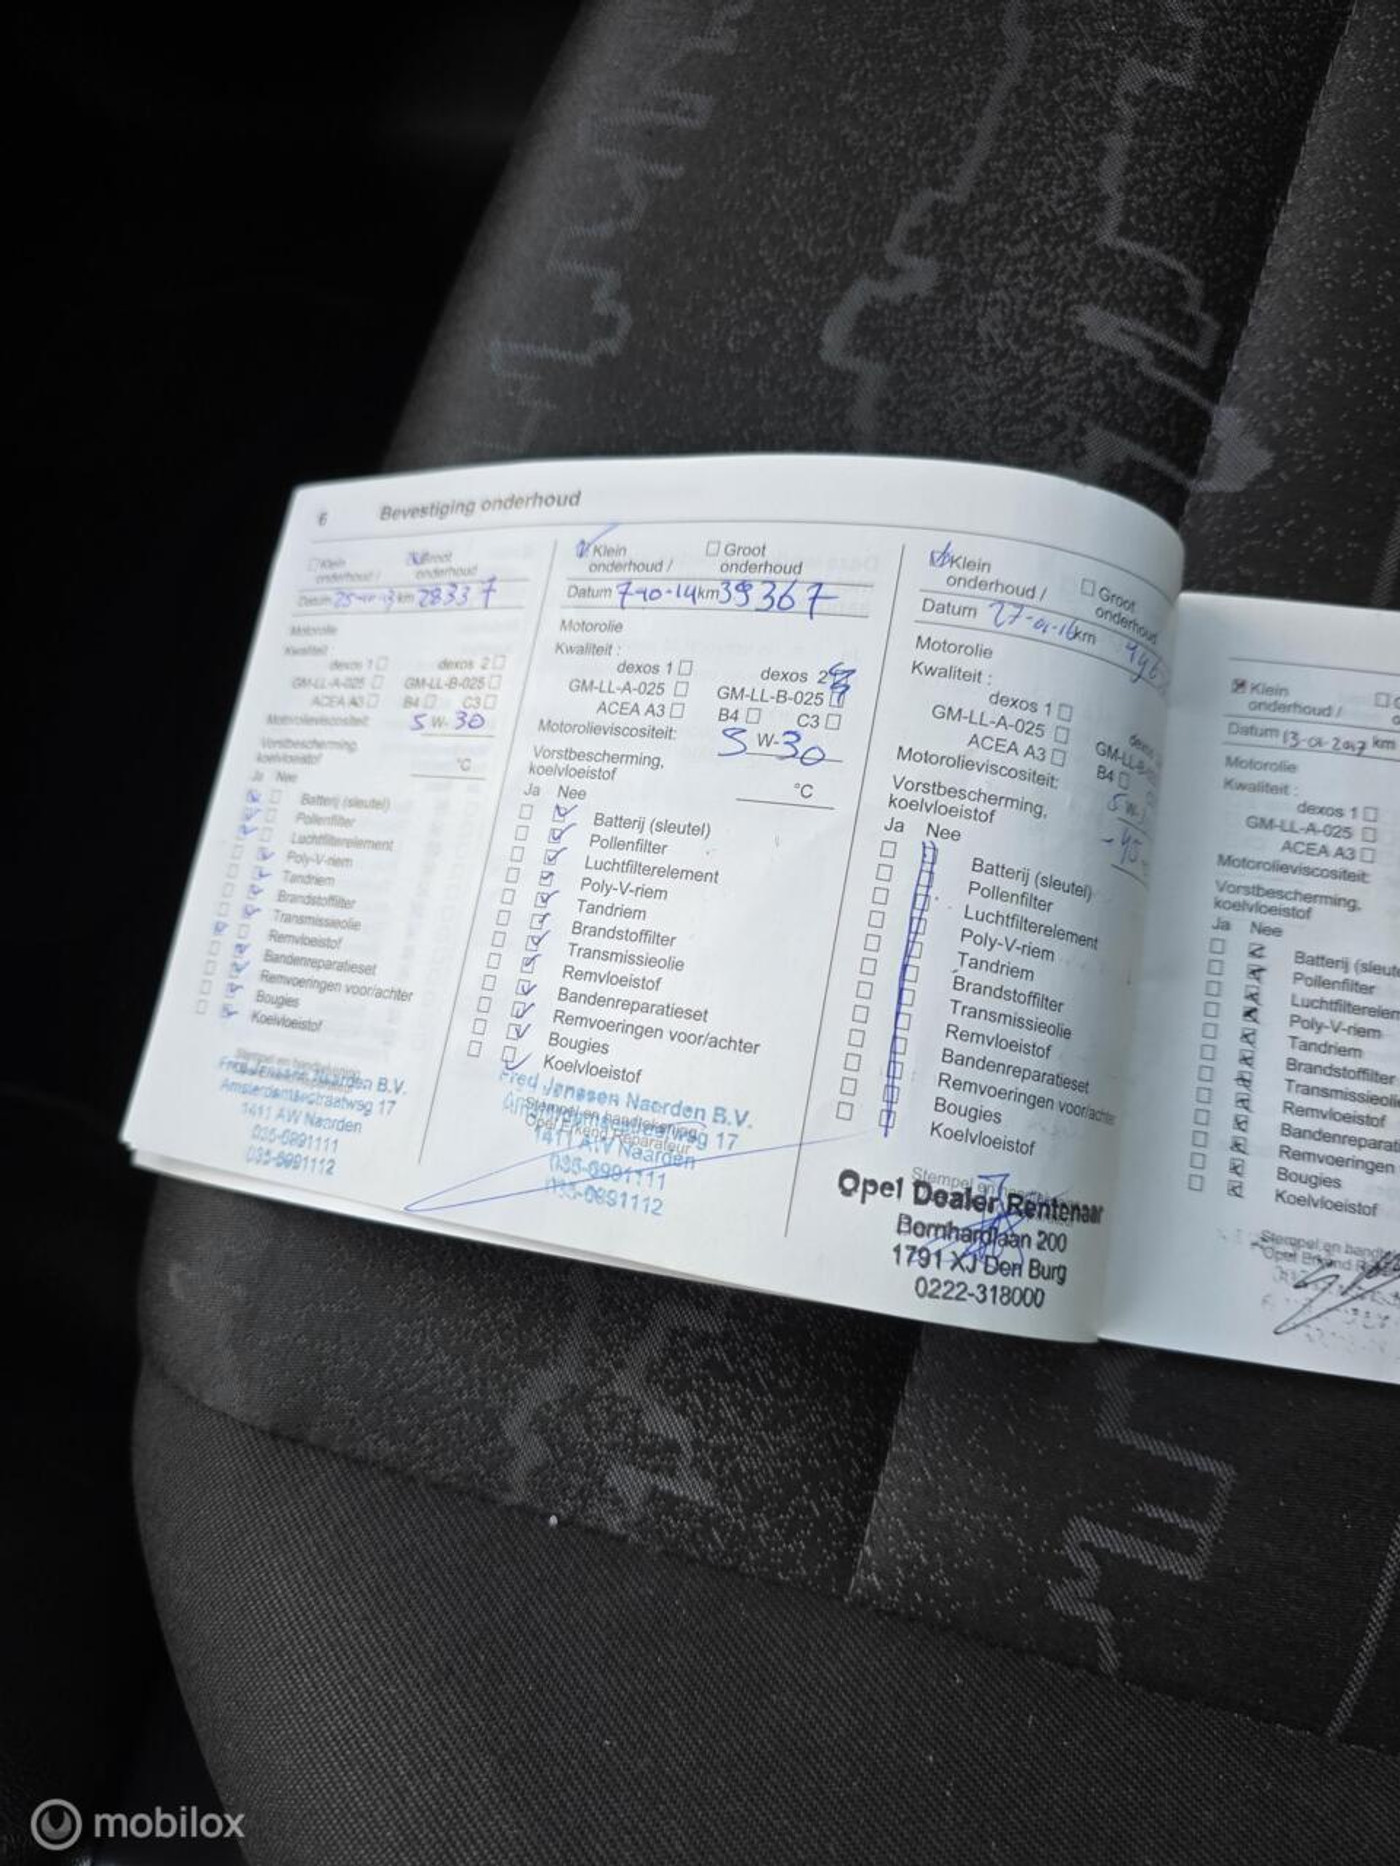 6 Bevestiging onderhoud
Klein onderhoud / Groot onderhoud
Datum km 28337
Motorolie
Kwaliteit :
dexos 1 dexos 2
GM-LL-A-025 GM-LL-B-025
ACEA A3 B4 C3
Motorolieviscositeit: 5 W-30
Vorstbescherming,
koelvloeistof °C
Ja Nee
Batterij (sleutel)
Pollenfilter
Luchtfilterelement
Poly-V-riem
Tandriem
Brandstoffilter
Transmissieolie
Remvloeistof
Bandenreparatieset
Remvoeringen voor/achter
Bougies
Koelvloeistof
Stempel en handtekening
Naarden B.V.
17
1411 AW Naarden
035-6991111
035-6991112
Klein onderhoud / Groot onderhoud
Datum 7-10-14 km 39367
Motorolie
Kwaliteit :
dexos 1 dexos 2
GM-LL-A-025 GM-LL-B-025
ACEA A3 B4 C3
Motorolieviscositeit: 5 W-30
Vorstbescherming,
koelvloeistof °C
Ja Nee
Batterij (sleutel)
Pollenfilter
Luchtfilterelement
Poly-V-riem
Tandriem
Brandstoffilter
Transmissieolie
Remvloeistof
Bandenreparatieset
Remvoeringen voor/achter
Bougies
Koelvloeistof
Fred Jonssen Naarden B.V.
Stempel en handtekening
17
Opel Erkend Reparateur
Naarden
035-6991111
035-6991112
Klein onderhoud / Groot onderhoud
Datum 27-01-16 km
Motorolie
Kwaliteit :
dexos 1 dexos
GM-LL-A-025 GM-LL-B
ACEA A3 B4
Motorolieviscositeit: 5 W-
Vorstbescherming,
koelvloeistof -40
Ja Nee
Batterij (sleutel)
Pollenfilter
Luchtfilterelement
Poly-V-riem
Tandriem
Brandstoffilter
Transmissieolie
Remvloeistof
Bandenreparatieset
Remvoeringen voor/achter
Bougies
Koelvloeistof
Stempel en
Opel Dealer Rentenaar
Bornhardlaan 200
1791 XJ Den Burg
0222-318000
Klein onderhoud /
Datum 13-01-2017 km
Motorolie
Kwaliteit :
dexos 1
GM-LL-A-025
ACEA A3
Motorolieviscositeit:
Vorstbescherming,
koelvloeistof
Ja Nee
Batterij (sleute
Pollenfilter
Luchtfilterelem
Poly-V-riem
Tandriem
Brandstoffilter
Transmissieolie
Remvloeistof
Bandenreparat
Remvoeringen
Bougies
Koelvloeistof
Stempel en handte
mobilox